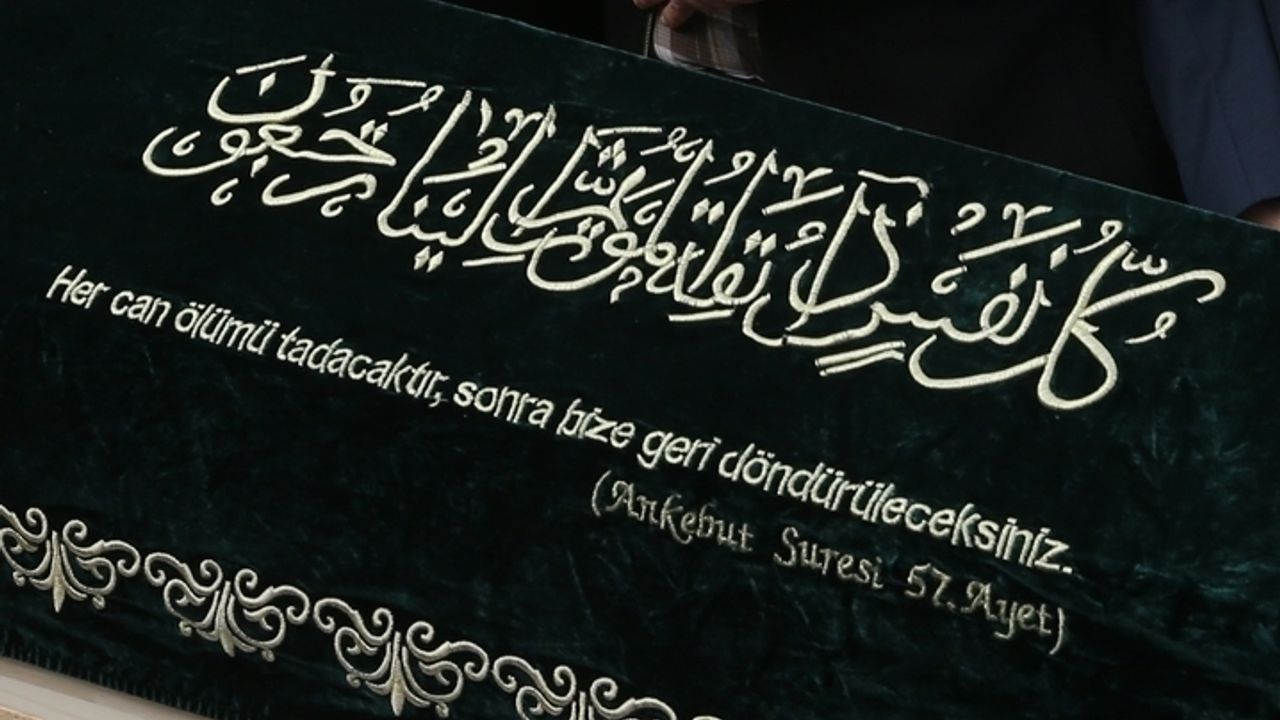 كُلُّ نَفْسٍ ذَائِقَةُ الْمَوْتِ ثُمَّ إِلَيْنَا تُرْجَعُونَ
Her can ölümü tadacaktır, sonra bize geri döndürüleceksiniz.
(Ankebut Suresi 57. Ayet)